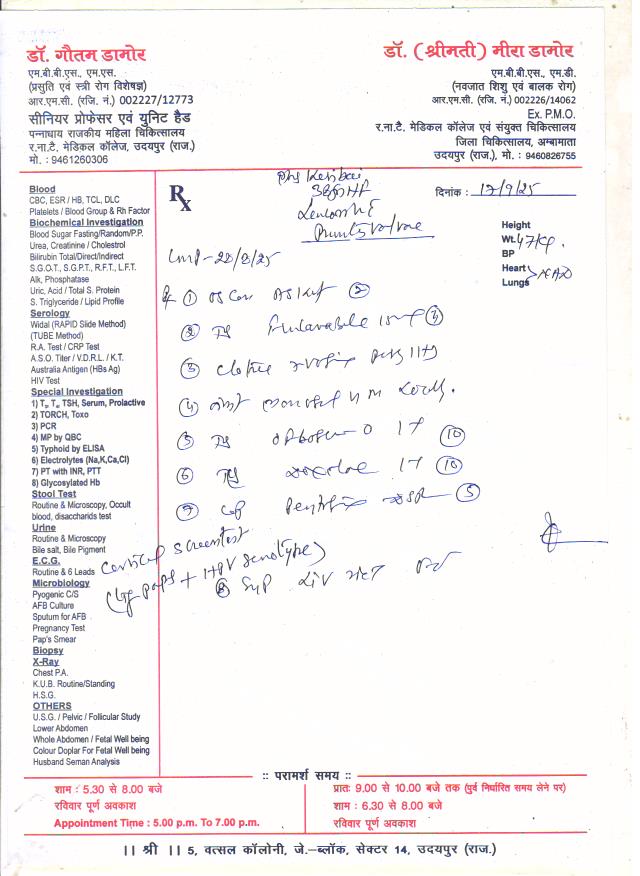 डॉ. गौतम डामोर
एम.बी.बी.एस., एम.एस.
(प्रसुति एवं स्त्री रोग विशेषज्ञ)
आर.एम.सी. (रजि. नं.) 002227/12773
सीनियर प्रोफेसर एवं युनिट हैड
पन्नाधाय राजकीय महिला चिकित्सालय
र.ना.टै. मेडिकल कॉलेज, उदयपुर (राज.)
मो. : 9461260306
डॉ. (श्रीमती) मीरा डामोर
एम.बी.बी.एस., एम.डी.
(नवजात शिशु एवं बालक रोग)
आर.एम.सी. (रजि. नं.) 002226/14062
Ex. P.M.O.
र.ना.टै. मेडिकल कॉलेज एवं संयुक्त चिकित्सालय
जिला चिकित्सालय, अम्बामाता
उदयपुर (राज.), मो. : 9460826755
Blood
CBC, ESR / HB, TCL, DLC
Platelets / Blood Group & Rh Factor
Biochemical Investigation
Blood Sugar Fasting/Random/P.P.
Urea, Creatinine / Cholestrol
Bilirubin Total/Direct/Indirect
S.G.O.T., S.G.P.T., R.F.T., L.F.T.
Alk, Phosphatase
Uric, Acid / Total S. Protein
S. Triglyceride / Lipid Profile
Serology
Widal (RAPID Slide Method)
(TUBE Method)
R.A. Test / CRP Test
A.S.O. Titer / V.D.R.L. / K.T.
Australia Antigen (HBs Ag)
HIV Test
Special Investigation
1) T3, T4, TSH, Serum, Prolactive
2) TORCH, Toxo
3) PCR
4) MP by QBC
5) Typhoid by ELISA
6) Electrolytes (Na,K,Ca,Cl)
7) PT with INR, PTT
8) Glycosylated Hb
Stool Test
Routine & Microscopy, Occult
blood, disaccharids test
Urine
Routine & Microscopy
Bile salt, Bile Pigment
E.C.G.
Routine & 6 Leads
Microbiology
Pyogenic C/S
AFB Culture
Sputum for AFB
Pregnancy Test
Pap's Smear
Biopsy
X-Ray
Chest P.A.
K.U.B. Routine/Standing
H.S.G.
OTHERS
U.S.G. / Pelvic / Follicular Study
Lower Abdomen
Whole Abdomen / Fetal Well being
Colour Doplar For Fetal Well being
Husband Seman Analysis
Rx
दिनांक : 17/9/25
Height
Wt. 47 kg.
BP
Heart
Lungs
NAD
LMP - 22/8/25
①
②
③
④
⑤ 1T ⑩
⑥ 1T ⑩
⑦ Cap DSR ⑤
⑧ Syp
Cervical screen test
(paps + HPV Genotype)
:: परामर्श समय ::
शाम : 5.30 से 8.00 बजे
रविवार पूर्ण अवकाश
Appointment Time : 5.00 p.m. To 7.00 p.m.
प्रातः 9.00 से 10.00 बजे तक (पुर्व निर्धारित समय लेने पर)
शाम : 6.30 से 8.00 बजे
रविवार पूर्ण अवकाश
|| श्री || 5, वत्सल कॉलोनी, जे.–ब्लॉक, सेक्टर 14, उदयपुर (राज.)